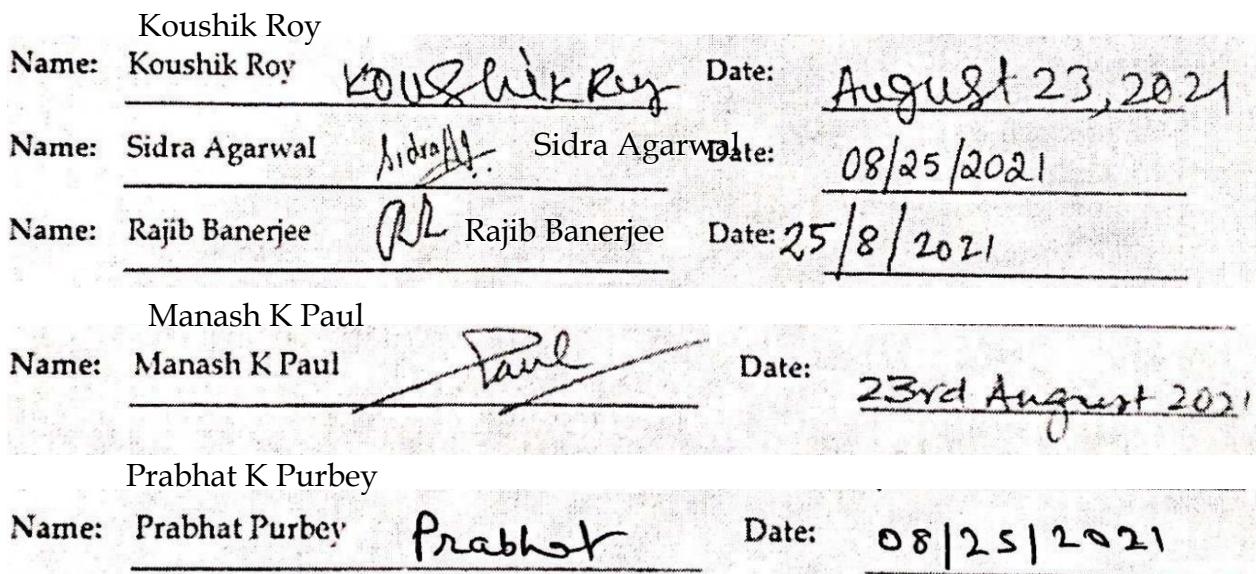 Koushik Roy
Name: Koushik Roy Koushik Roy Date: August 23, 2021
Name: Sidra Agarwal SidraAg. Sidra Agarwal Date: 08/25/2021
Name: Rajib Banerjee Rajib Banerjee Date: 25/8/2021
Manash K Paul
Name: Manash K Paul Paul Date: 23rd August 2021
Prabhat K Purbey
Name: Prabhat Purbey Prabhat Date: 08/25/2021